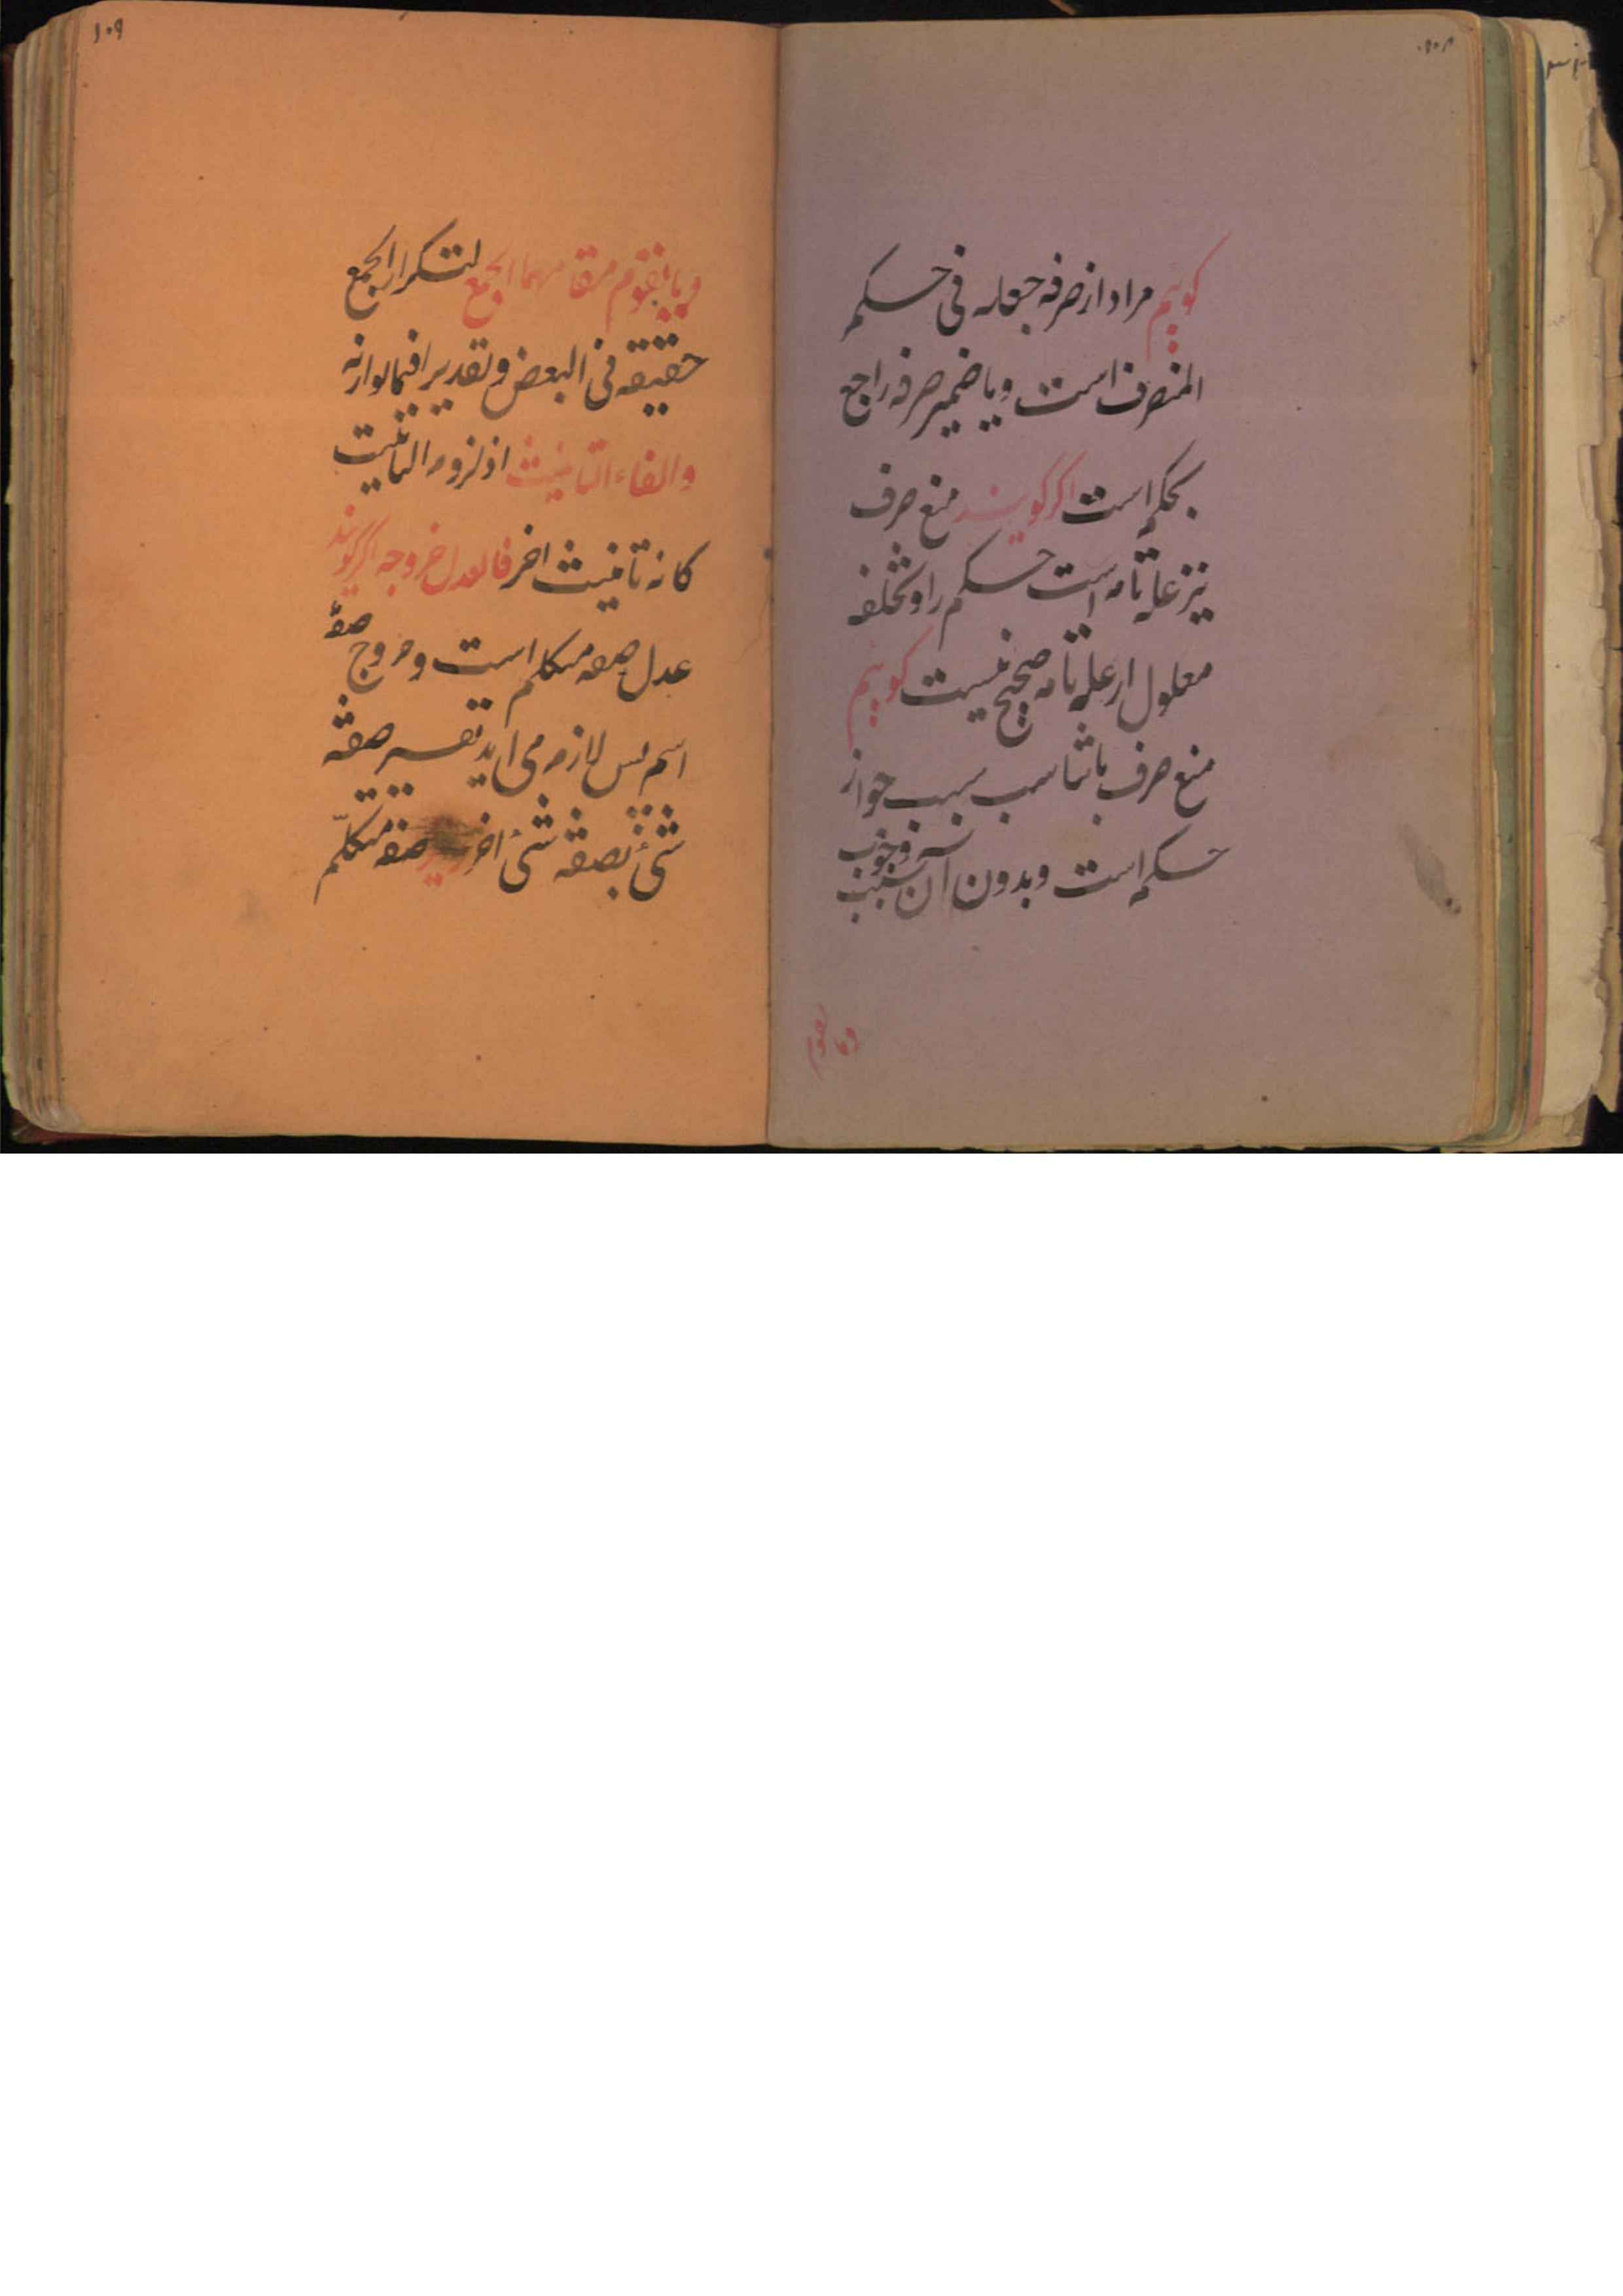 کوییم مراد از صرفه جعله فی حکم
المنصرف است ویا ضمیر صرفه راجع
بحکم است اکر کویند منع صرف
نیز علة تامه است حکم را وتخلف
معلول از علة تامه صحیح نیست کوییم
منع صرف با تناسب سبب جواز
حکم است وبدون آن سبب وجوب
وما یقوم
۱۰۹
وما یقوم مقامهما الجمع لتکرار الجمع
حقیقة فی البعض وتقدیرا فیما وازنه
والفاء التانیث اذ لزوم التانیث
کانه تانیث اخر فالعدل خروجه اکر کویند
عدل صفه متکلم است وخروج صفة
اسم پس لازم می اید تفسیر صفة
شیٔ بصفة شیٔ اخر صفة متکلم